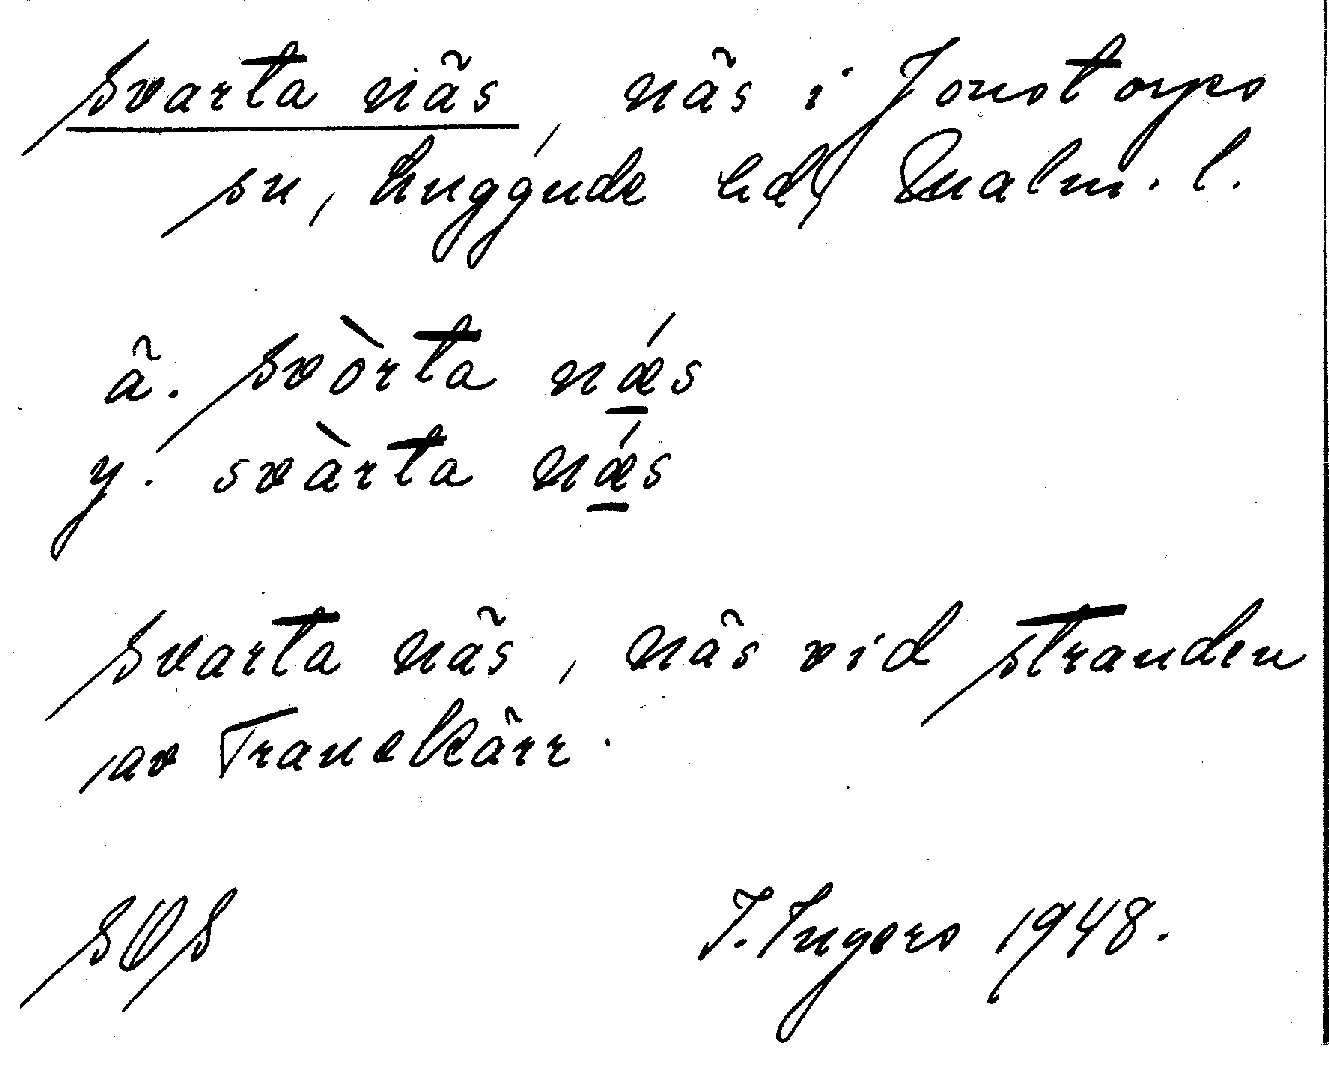 Svarta näs, näs i Jonstorps
sn, Luggude hd, Malm. l.
ä. svòrta nǽs
y. svàrta nǽs
Svarta näs, näs vid stranden
av Tranekärr.
SOS I. Ingers 1948.